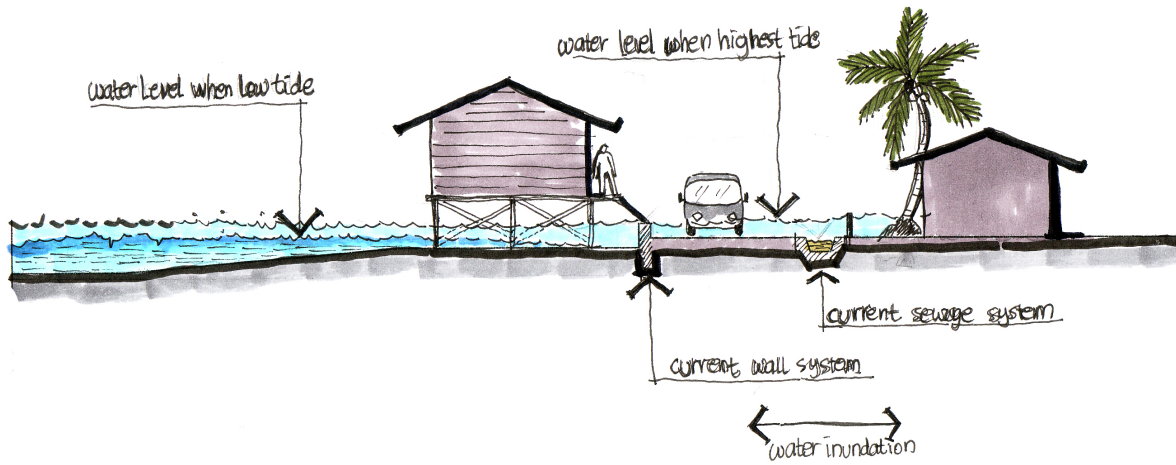 water level when highest tide
water level when low tide
current sewage system
current wall system
water inundation